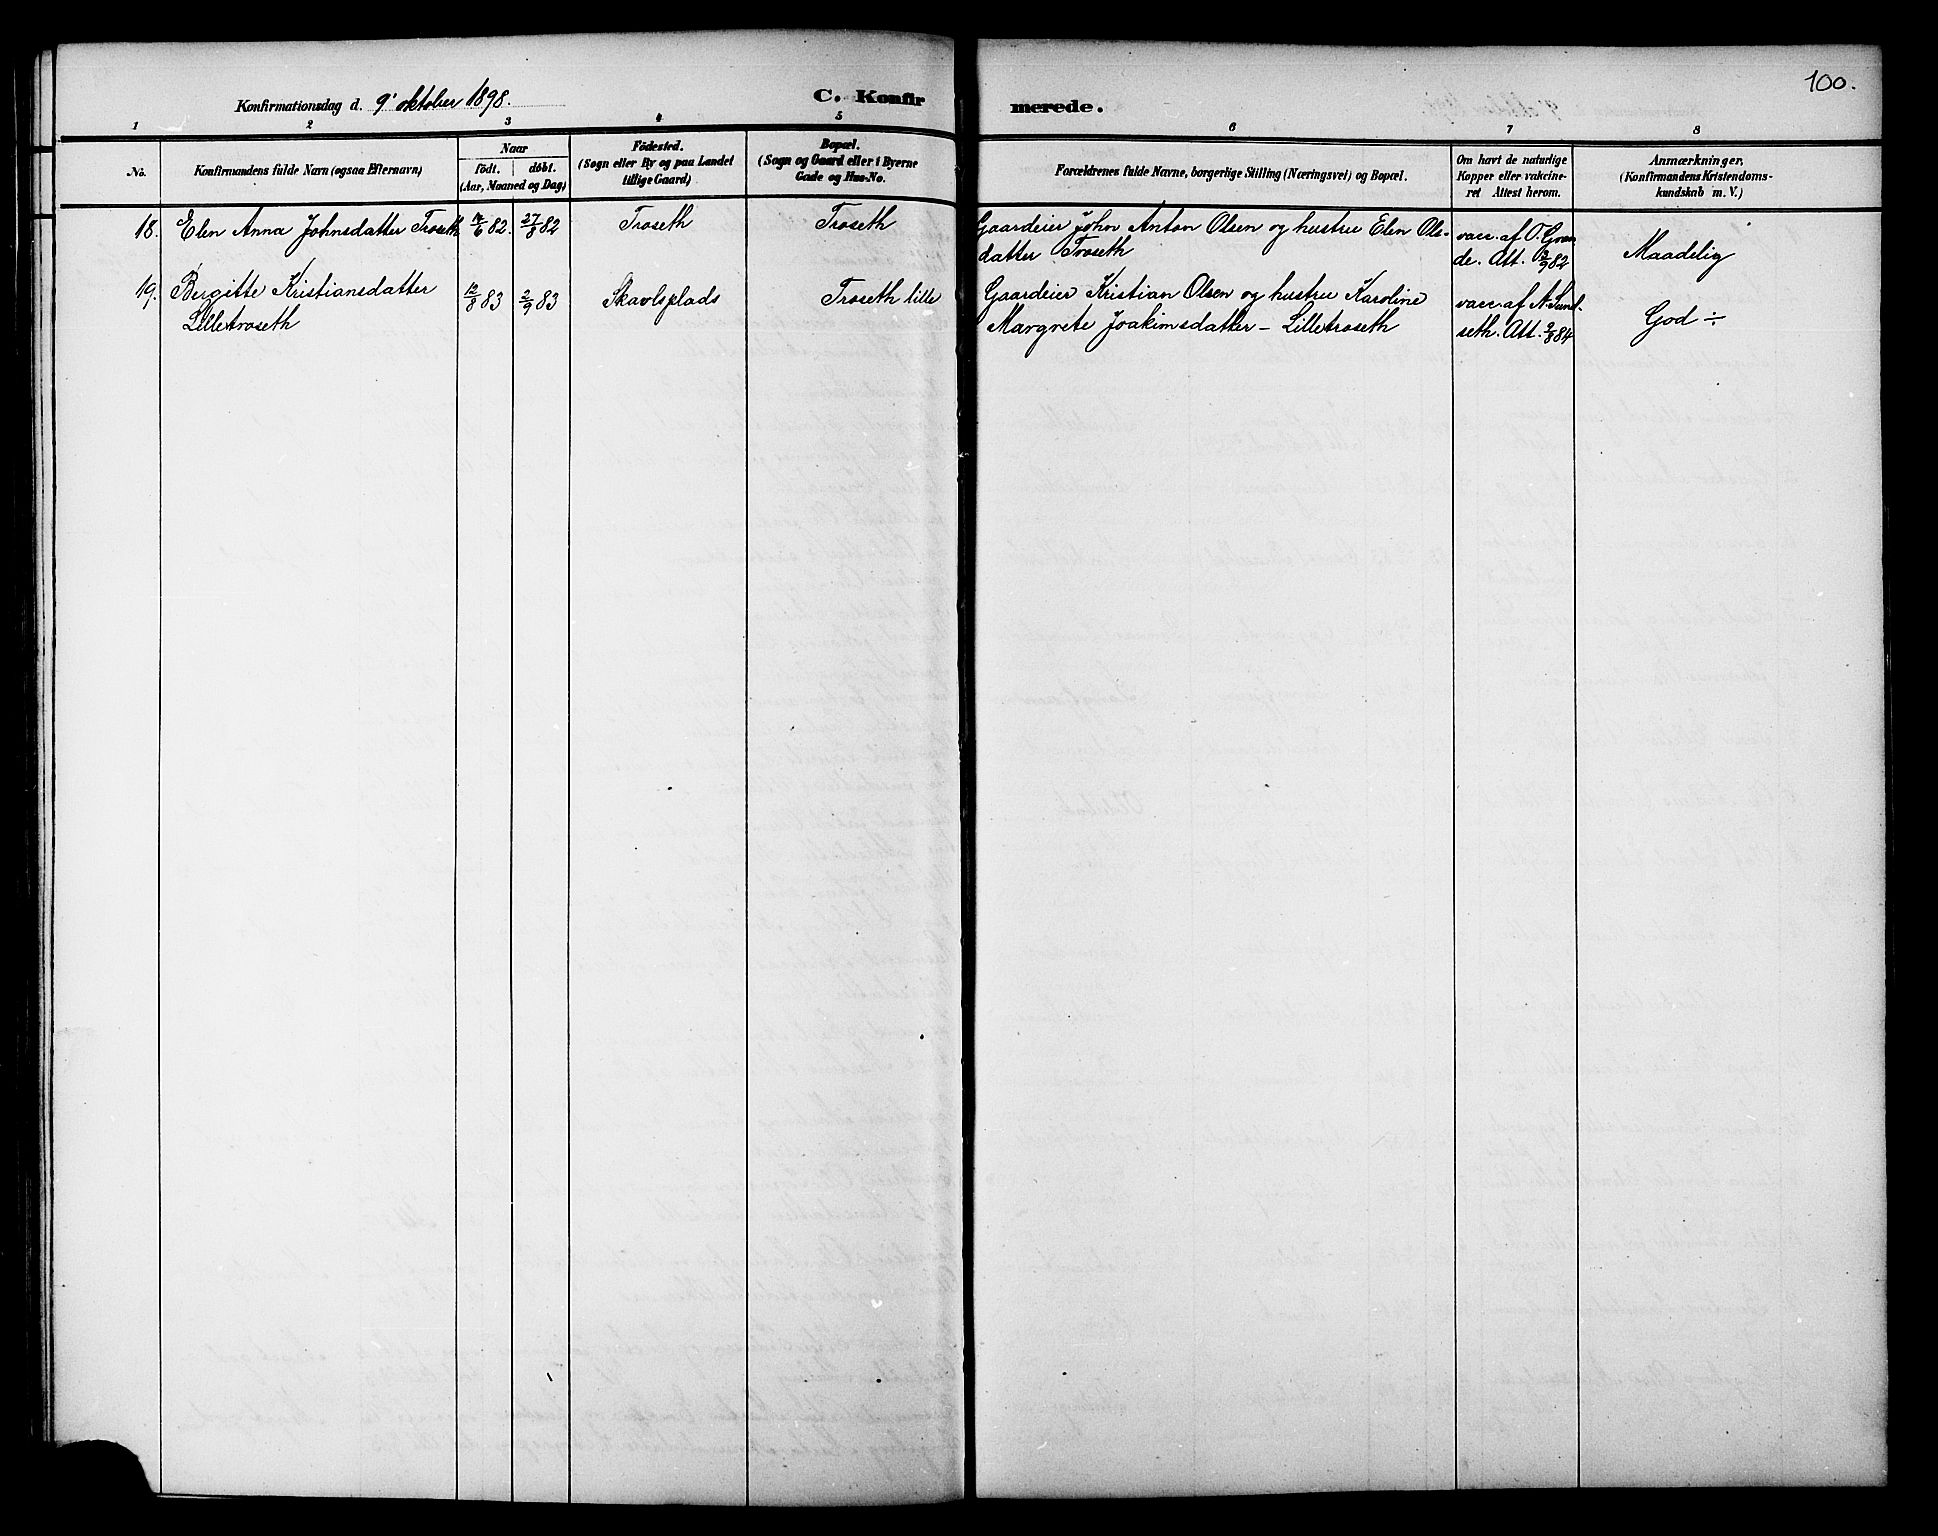 100.
Konfirmationsdag d. 9' oktober 1898.
C. Konfirmerede.
1 2 3 4 5 6 7 8
No.
Konfirmandens fulde Navn (ogsaa Efternavn)
Naar
födt. döbt.
(Aar, Maaned og Dag)
Födested.
(Sogn eller By og paa Landet
tillige Gaard)
Bopæl.
(Sogn og Gaard eller i Byerne
Gade og Hus-No.
Forældrenes fulde Navne, borgerlige Stilling (Næringsvei) og Bopæl.
Om havt de naturlige
Kopper eller vakcine-
ret Attest herom.
Anmærkninger,
(Konfirmandens Kristendoms-
kundskab m. V.)
18. Elen Anna Johnsdatter Troseth 82. 27/8 82 Troseth Troseth
Gaardeier John Anton Olsen og hustru Elen Ols-
datter Troseth
vacc. af O. Gran-
de. Att. 2/9 82
Maadelig
19. Bergitte Kristiansdatter
Lilletroseth
12/8 83 2/9 83 Skavlsplads Troseth lille
Gaardeier Kristian Olsen og hustru Karoline
Margrete Joakimsdatter - Lilletroseth
vacc. af N. Sund-
seth. Att. 2/8 84
God ÷